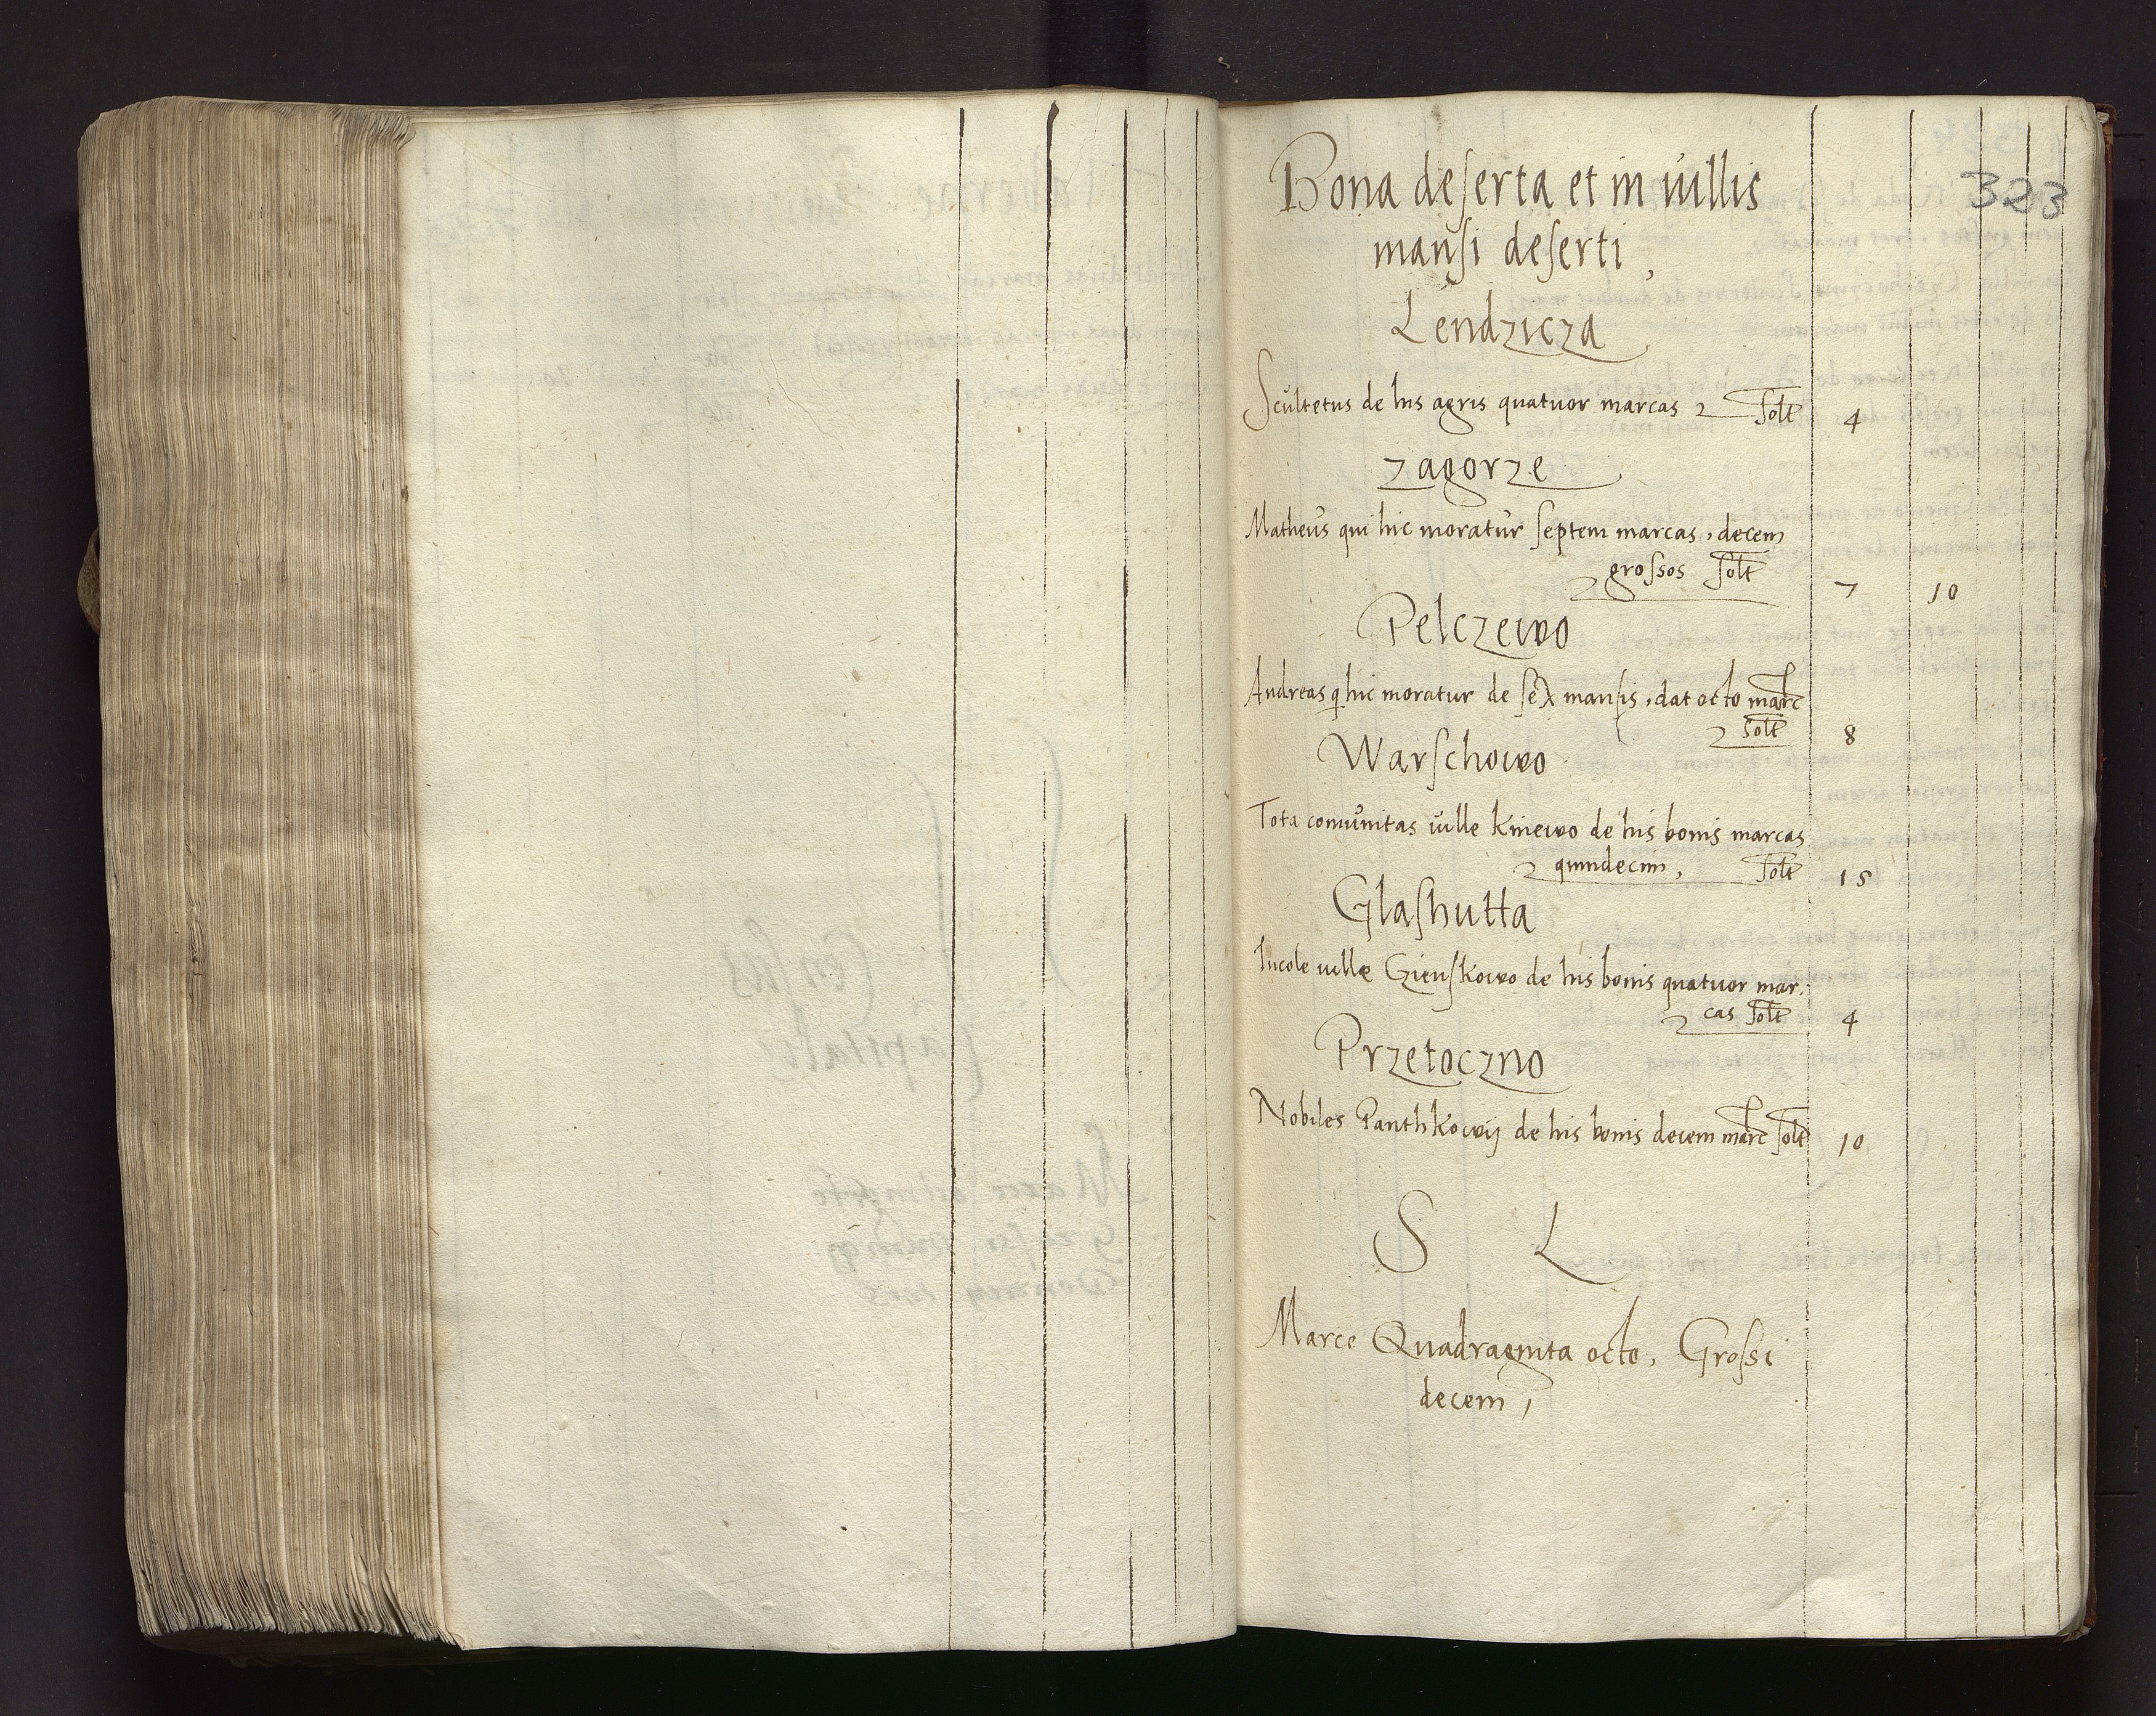 323
Bona deserta et in uillis
mansi deserti,
Lendzicza
Scultetus de his agris quatuor marcas solt 4
Zagorze
Matheus qui hic moratur septem marcas, decem
grossos solt 7 10
Pelczewo
Andreas q hic moratur de sex mansis, dat octo marc
solt 8
Warschowo
Tota comunitas uille Kniewo de his bonis marcas
quindecim, solt 15
Glashutta
Incole uillæ Gienskowo de his bonis quatuor mar,
cas solt 4
Przetoczno
Nobiles Panthkowij de his bonis decem marc solt 10
S L
Marce Quadraginta octo, Grossi
decem,